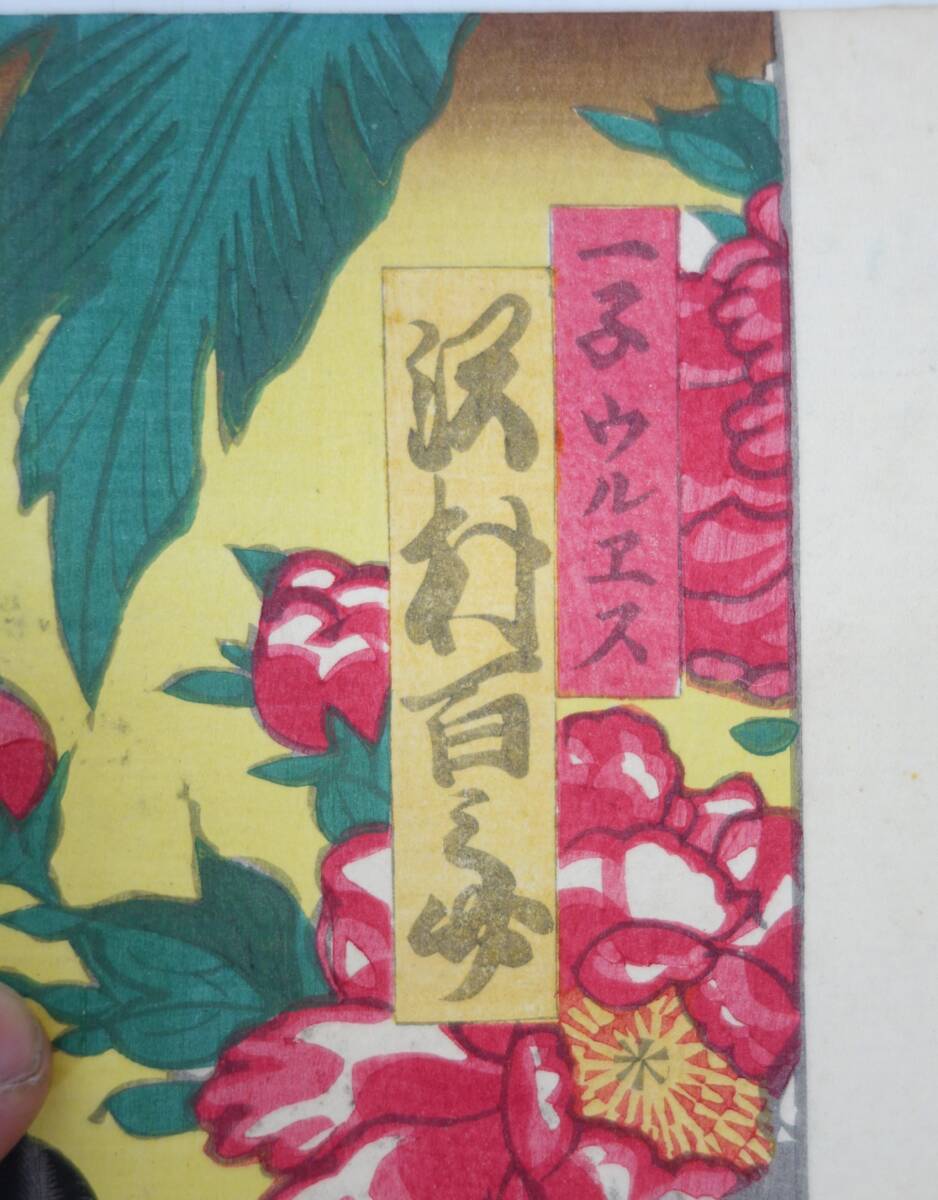 一子ウルヱス
沢村百之助